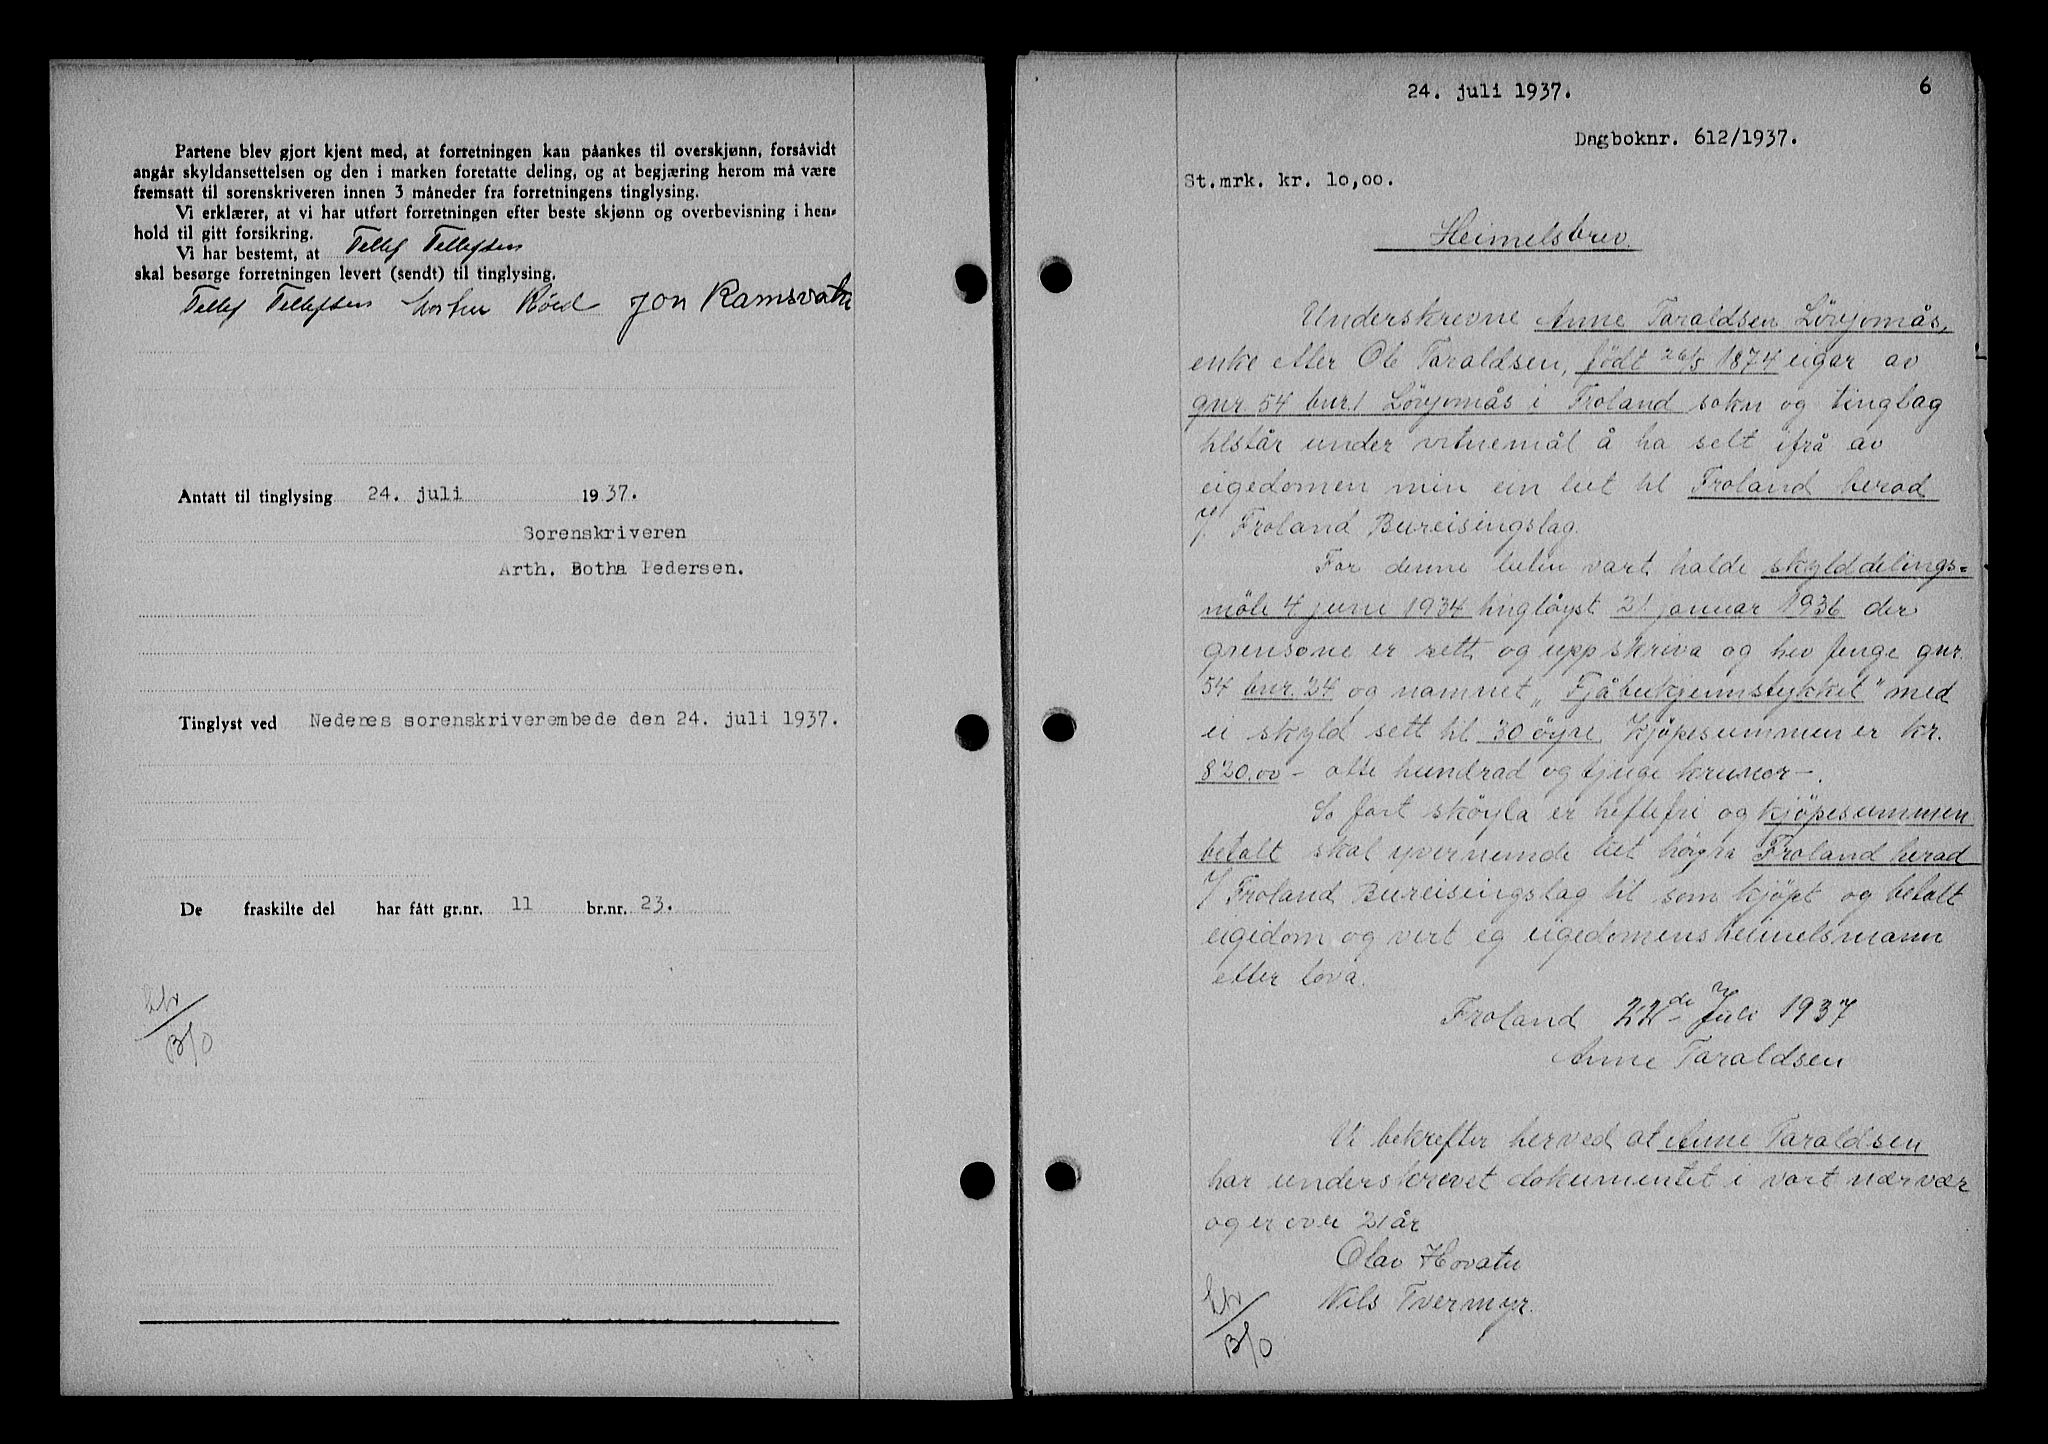 Partene blev gjort kjent med, at forretningen kan påankes til overskjønn, forsåvidt
angår skyldansettelsen og den i marken foretatte deling, og at begjæring herom må være
fremsatt til sorenskriveren innen 3 måneder fra forretningens tinglysing.
Vi erklærer, at vi har utført forretningen efter beste skjønn og overbevisning i hen-
hold til gitt forsikring.
Vi har bestemt, at Tellef Tellefsen
skal besørge forretningen levert (sendt) til tinglysing.
Tellef Tellefsen Røed Jon Ramsvatn
Antatt til tinglysing 24. juli 1937.
Sorenskriveren
Arth. Botha Pedersen.
Tinglyst ved Nedenes sorenskriverembede den 24. juli 1937.
De fraskilte del har fått gr.nr. 11 br.nr. 23.
B/O
24. juli 1937. 6
Dagboknr. 612/1937.
St.mrk. kr. 10,00.
Heimelsbrev.
Underskrevne Anne Taraldsen Lövjomås,
enke etter Ole Taraldsen, födt 26/5 1874 eigar av
gnr. 54 bnr. 1 Lövjomås i Froland sokn og tinglag
tilstår under vitnemål å ha selt ifrå av
eigedomen min ein lut til Froland herad
v/ Froland Bureisingslag.
For denne luten vart halde skylddelings-
möte 4 juni 1934 tinglöyst 21 januar 1936 der
grensone er rett og uppskriva og hev fenge gnr.
54 bnr. 24 og namnet "Fjåbukjennstykket" med
ei skyld sett til 30 öyre. Kjöpesummen er kr.
820.00 - otte hundrad og tjuge krunor -.
So fort sköyta er heftefri og kjöpesummen
betalt skal yvernemde lut höyra Froland herad
v/ Froland Bureisingslag til som kjöpt og betalt
eigidom og vert eg eigedomens heimelsmann
etter lova.
Froland 22de Juli 1937
Anne Taraldsen
Vi bekrefter herved at Anne Taraldsen
har underskrevet dokumentet i vort nærvær
og er over 21 år
Olav Hovatn
Nils Tvermyr.
B/O